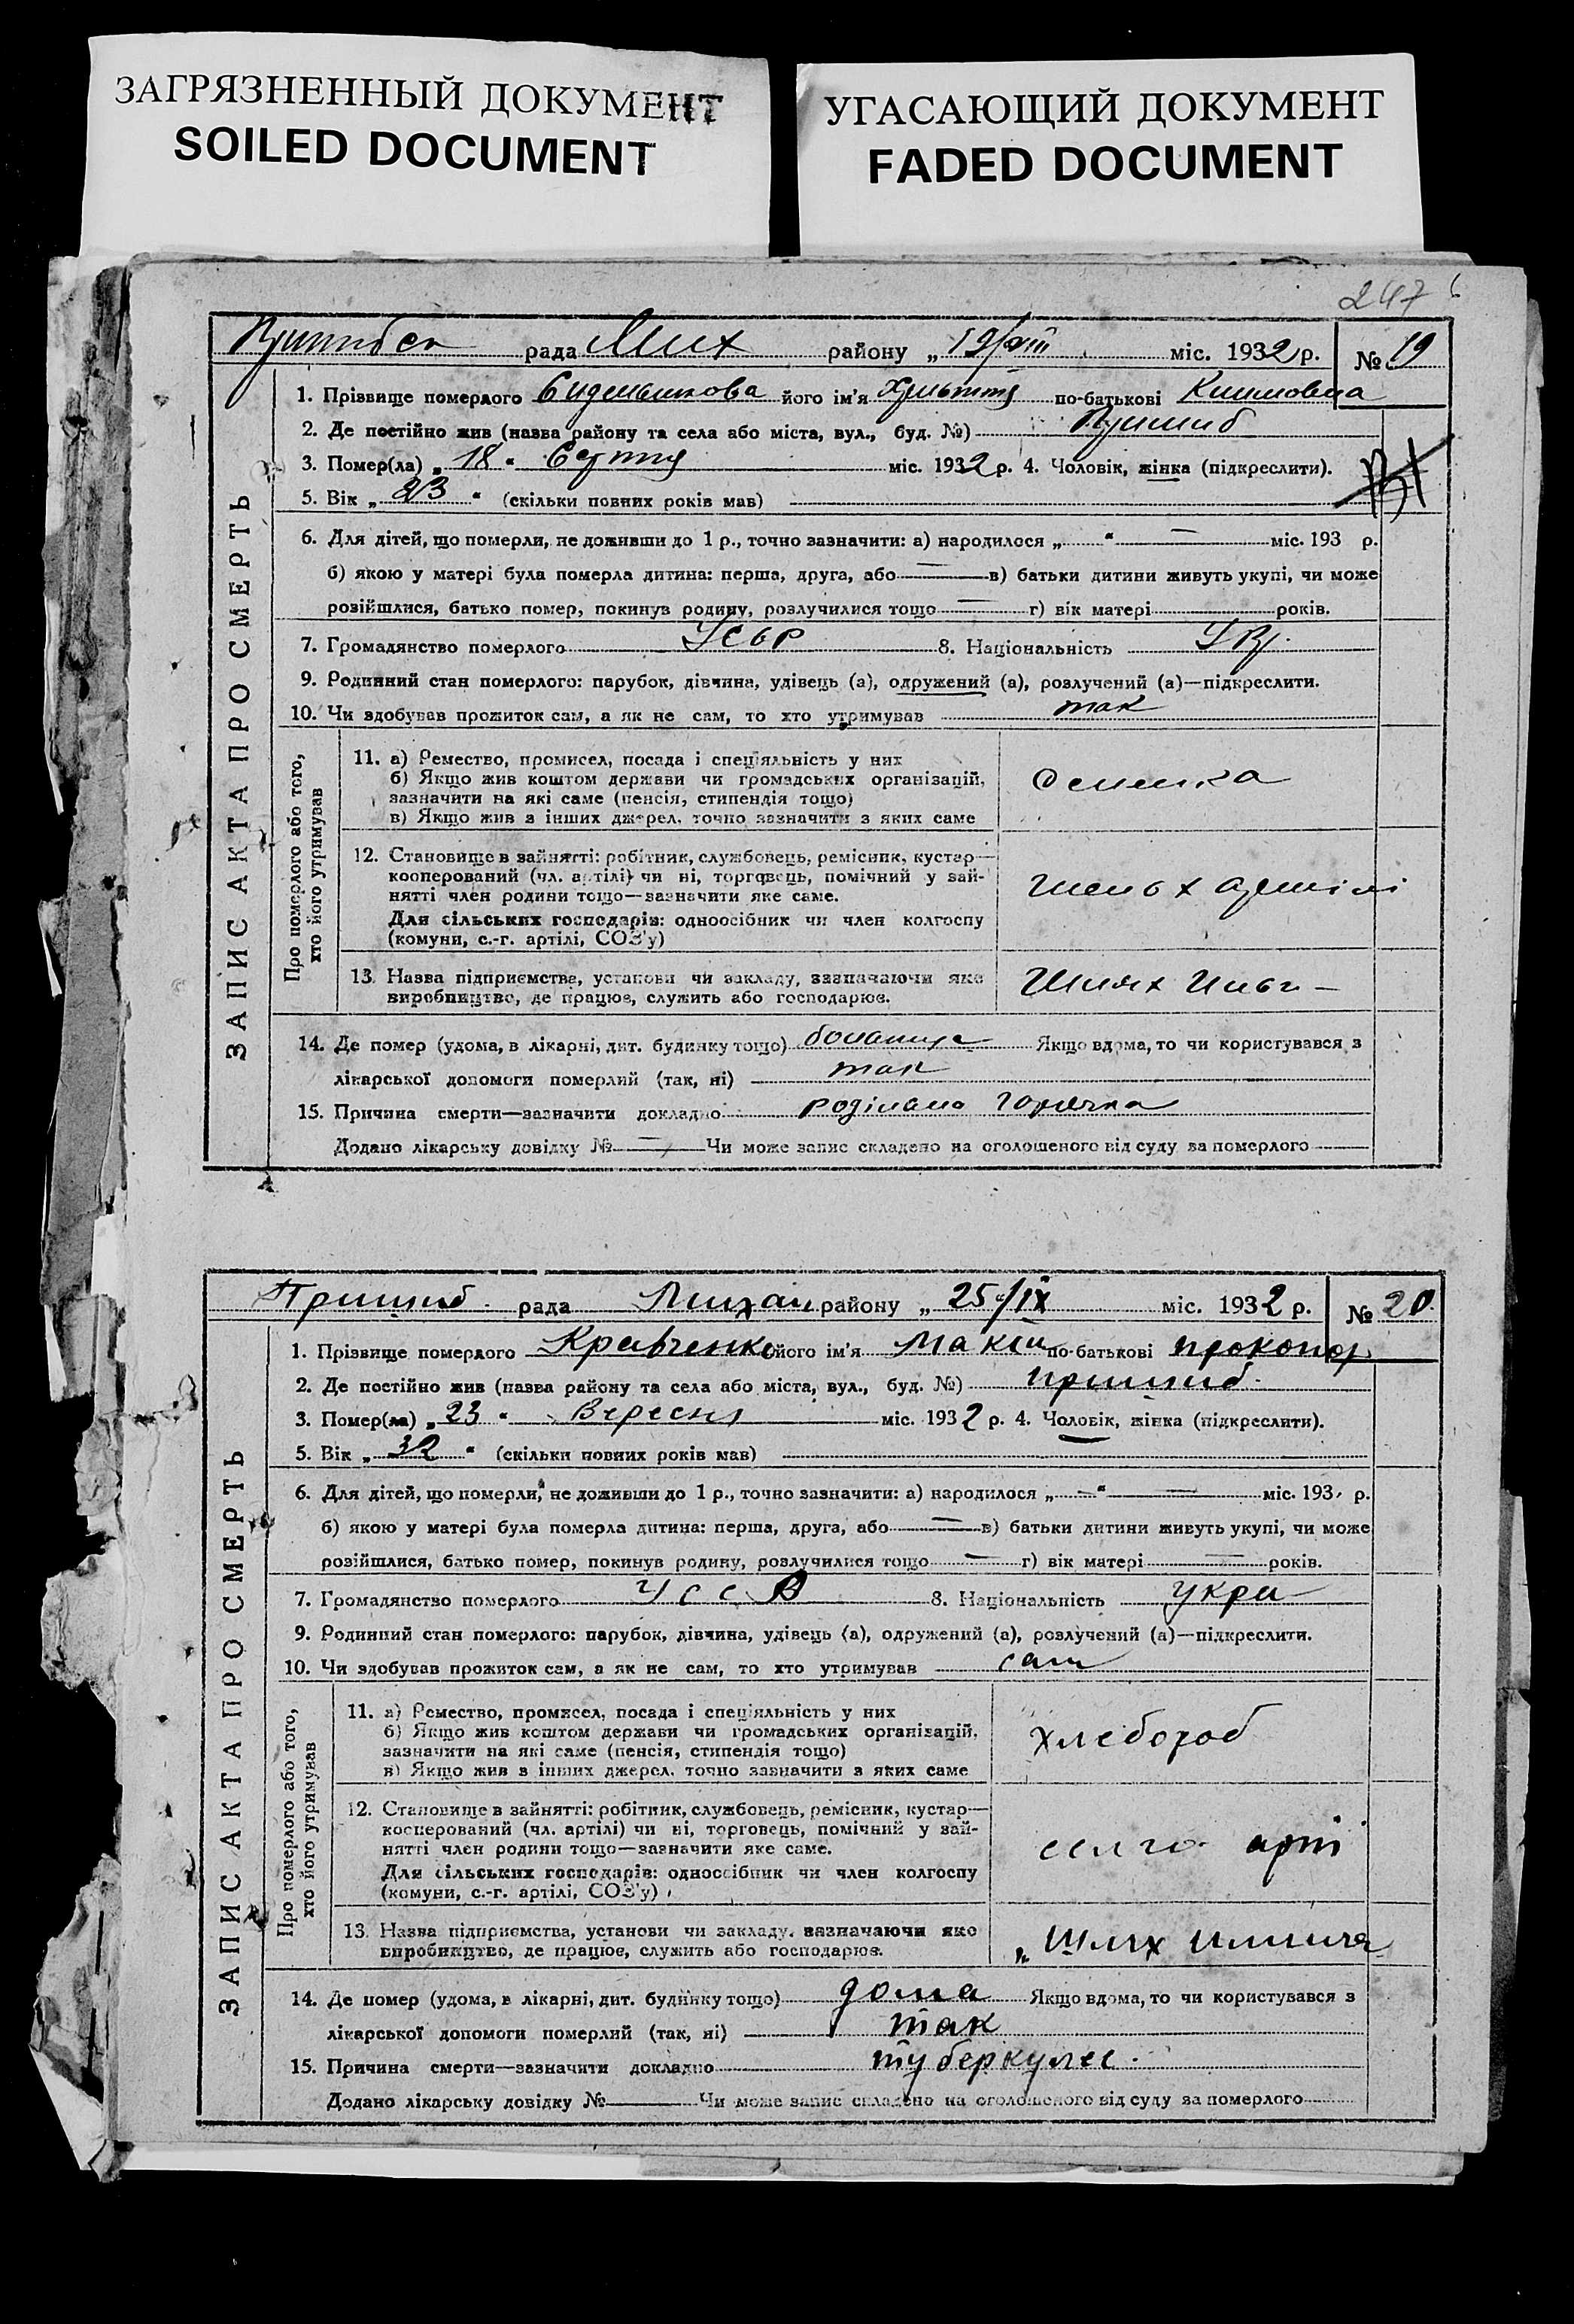 ЗАГРЯЗНЕННЫЙ ДОКУМЕНТ
SOILED DOCUMENT
УГАСАЮЩИЙ ДОКУМЕНТ
FADED DOCUMENT
247
рада Мих району „19/VIII міс. 1932 р. № 19
ЗАПИС АКТА ПРО СМЕРТЬ
1. Прізвище померлого Сидельникова його ім'я по-батькові Климовна
2. Де постійно жив (назва району та села або міста, вул., буд. №) Пришиб
3. Помер(ла) „18“ Серпня міс. 1932 р. 4. Чоловік, жінка (підкреслити).
5. Вік „23“ (скільки повних років мав)
6. Для дітей, що померли, не доживши до 1 р., точно зазначити: а) народилося „ “ — міс. 193 р.
б) якою у матері була померла дитина: перша, друга, або — в) батьки дитини живуть укупі, чи може
розійшлися, батько помер, покинув родину, розлучилися тощо — г) вік матері років.
7. Громадянство померлого УСРР 8. Національність Укр.
9. Родинний стан померлого: парубок, дівчина, удівець (а), одружений (а), розлучений (а)—підкреслити.
10. Чи здобував прожиток сам, а як не сам, то хто утримував так
Про померлого або того,
хто його утримував
11. а) Ремество, промисел, посада і спеціяльність у них
б) Якщо жив коштом держави чи громадських організацій,
зазначити на які саме (пенсія, стипендія тощо)
в) Якщо жив з інших джерел, точно зазначити з яких саме
12. Становище в зайнятті: робітник, службовець, ремісник, кустар—
кооперований (чл. артілі) чи ні, торговець, помічний у зай-
нятті член родини тощо—зазначити яке саме.
Для сільських господарів: одноосібник чи член колгоспу
(комуни, с.-г. артілі, СОЗ'у)
член х артілі
13. Назва підприємства, установи чи закладу, зазначаючи яке
виробництво, де працює, служить або господарює.
Шлях Ильи-
14. Де помер (удома, в лікарні, дит. будинку тощо) больница Якщо вдома, то чи користувався з
лікарської допомоги померлий (так, ні) так
15. Причина смерти—зазначити докладно горячка
Додано лікарську довідку № — Чи може запис складено на оголошеного від суду за померлого
Пришиб. рада Михай району „25/IX міс. 1932 р. № 20.
ЗАПИС АКТА ПРО СМЕРТЬ
1. Прізвище померлого Кравченко його ім'я Макси по-батькові Прокопор
2. Де постійно жив (назва району та села або міста, вул., буд. №) Пришиб.
3. Помер(ла) „23“ Вересня міс. 1932 р. 4. Чоловік, жінка (підкреслити).
5. Вік „32“ (скільки повних років мав)
6. Для дітей, що померли, не доживши до 1 р., точно зазначити: а) народилося „—“ — міс. 193 р.
б) якою у матері була померла дитина: перша, друга, або — в) батьки дитини живуть укупі, чи може
розійшлися, батько помер, покинув родину, розлучилися тощо — г) вік матері — років.
7. Громадянство померлого УССР 8. Національність укра
9. Родинний стан померлого: парубок, дівчина, удівець (а), одружений (а), розлучений (а)—підкреслити.
10. Чи здобував прожиток сам, а як не сам, то хто утримував сам
Про померлого або того,
хто його утримував
11. а) Ремество, промисел, посада і спеціяльність у них
б) Якщо жив коштом держави чи громадських організацій,
зазначити на які саме (пенсія, стипендія тощо)
в) Якщо жив з інших джерел, точно зазначити з яких саме
хлебороб
12. Становище в зайнятті: робітник, службовець, ремісник, кустар—
кооперований (чл. артілі) чи ні, торговець, помічний у зай-
нятті член родини тощо—зазначити яке саме.
Для сільських господарів: одноосібник чи член колгоспу
(комуни, с.-г. артілі, СОЗ'у)
арті
13. Назва підприємства, установи чи закладу, зазначаючи яке
виробництво, де працює, служить або господарює.
„Шлях Илліча
14. Де помер (удома, в лікарні, дит. будинку тощо) дома Якщо вдома, то чи користувався з
лікарської допомоги померлий (так, ні) так
15. Причина смерти—зазначити докладно туберкулес.
Додано лікарську довідку № Чи може запис складено на оголошеного від суду за померлого